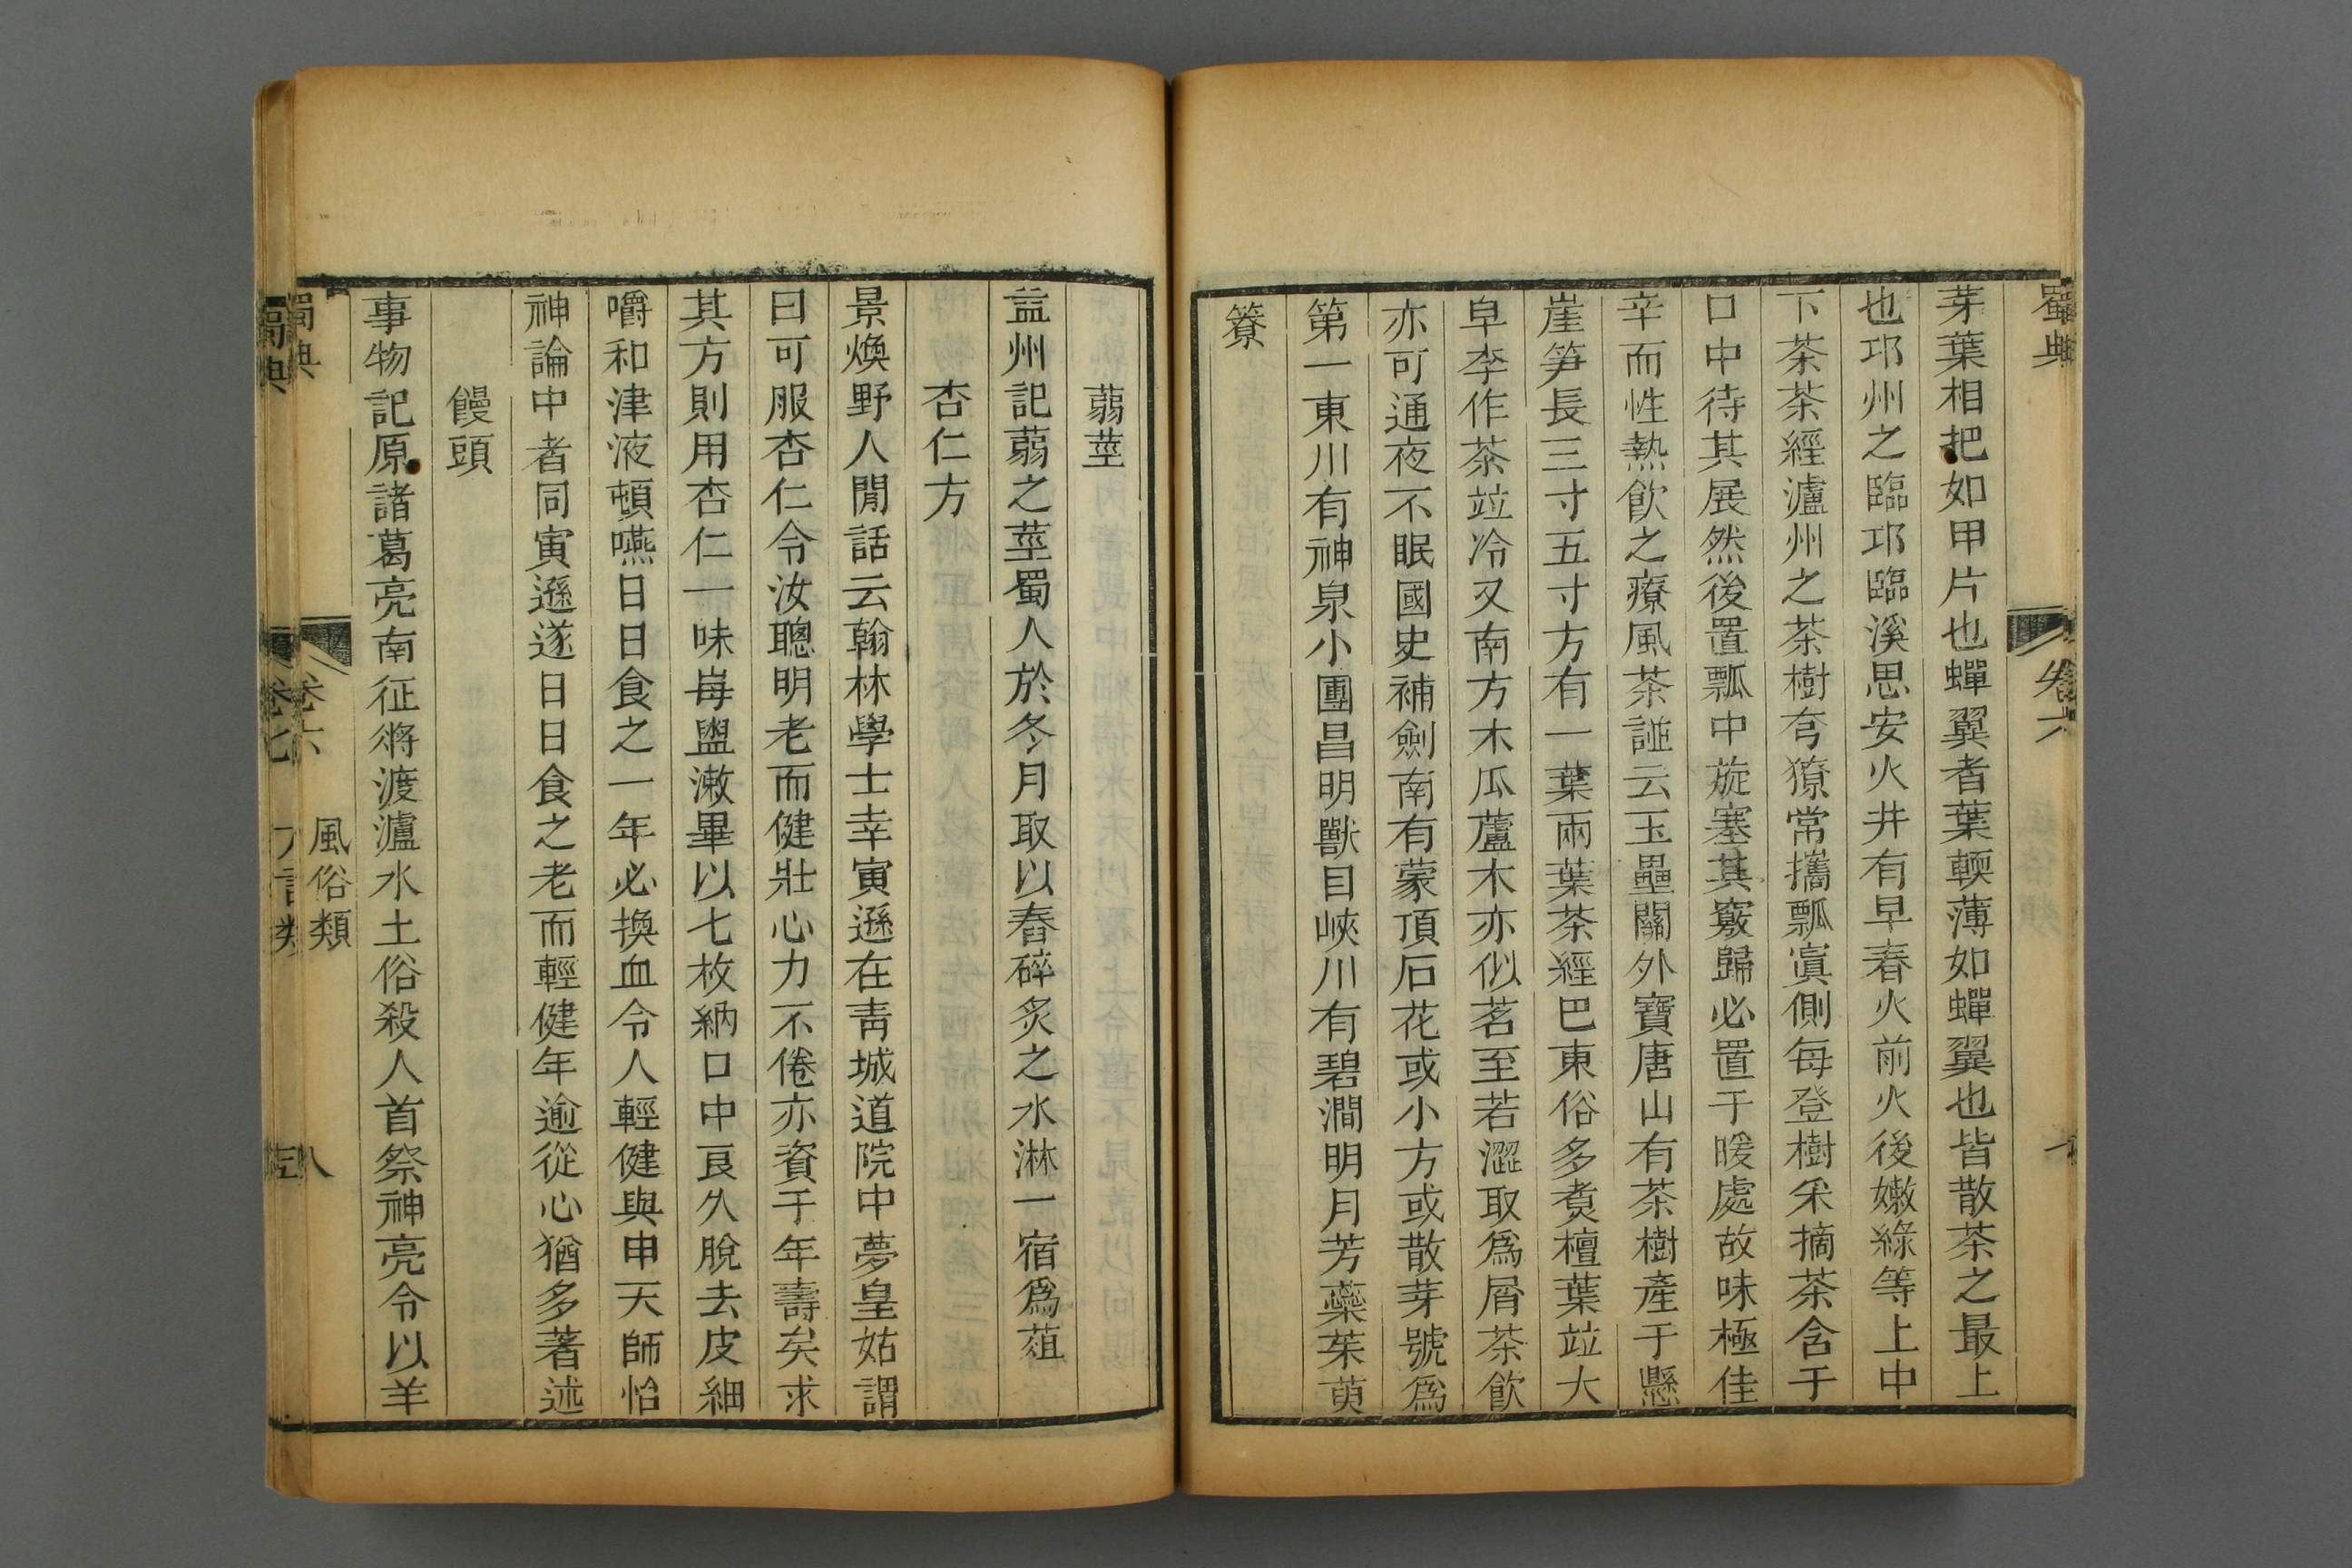 蜀典
卷六
芽葉相把如甲片也蟬翼者葉輭薄如蟬翼也皆散茶之最上
也邛州之臨邛臨溪思安火井有早春火前火後嫩綠等上中
下茶茶經瀘州之茶樹夸獠常攜瓢寘側每登樹采摘茶含于
口中待其展然後置瓢中旋塞其竅歸必置于暖處故味極佳
辛而性熱飮之療風茶譜云玉壘關外寶唐山有茶樹產于懸
崖笋長三寸五寸方有一葉兩葉茶經巴東俗多煑檀葉竝大
皁李作茶竝冷又南方木瓜蘆木亦似茗至若澀取爲屑茶飮
亦可通夜不眠國史補劍南有蒙頂石花或小方或散芽號爲
第一東川有神泉小團昌明獸目峽川有碧澗明月芳蘂茱萸
簝
蒻莖
益州記蒻之莖蜀人於冬月取以舂碎炙之水淋一宿爲葅
杏仁方
景煥野人閒話云翰林學士幸寅遜在靑城道院中夢皇姑謂
曰可服杏仁令汝聰明老而健壯心力不倦亦資于年壽矣求
其方則用杏仁一味每盥漱畢以七枚納口中良久脫去皮細
嚼和津液頓嚥日日食之一年必換血令人輕健與申天師怡
神論中者同寅遜遂日日食之老而輕健年逾從心猶多著述
饅頭
事物記原諸葛亮南征將渡瀘水土俗殺人首祭神亮令以羊
蜀典
卷六
風俗類
八
卷七